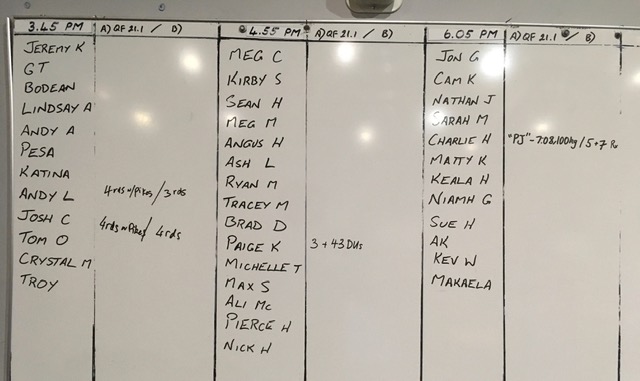 3.45 PM
A) QF 21.1 / D)
JEREMY K
GT
BODEAN
LINDSAY A
ANDY A
PESA
KATINA
ANDY L 4rds w/pikes / 3rds
JOSH C
TOM O 4rds w Pikes / 4rds
CRYSTAL M
TROY
4.55 PM
A) QF 21.1 / B)
MEG C
KIRBY S
SEAN H
MEG M
ANGUS H
ASH L
RYAN M
TRACEY M
BRAD D
PAIGE K 3 + 43 DUs
MICHELLE T
MAX S
ALI MC
PIERCE H
NICK H
6.05 PM
A) QF 21.1 / B)
JON G
CAM K
NATHAN J
SARAH M
CHARLIE H "PJ" - 7.08, 100kg / 5+7
MATTY K
KEALA H
NIAMH G
SUE H
AK
KEV W
MAKAELA